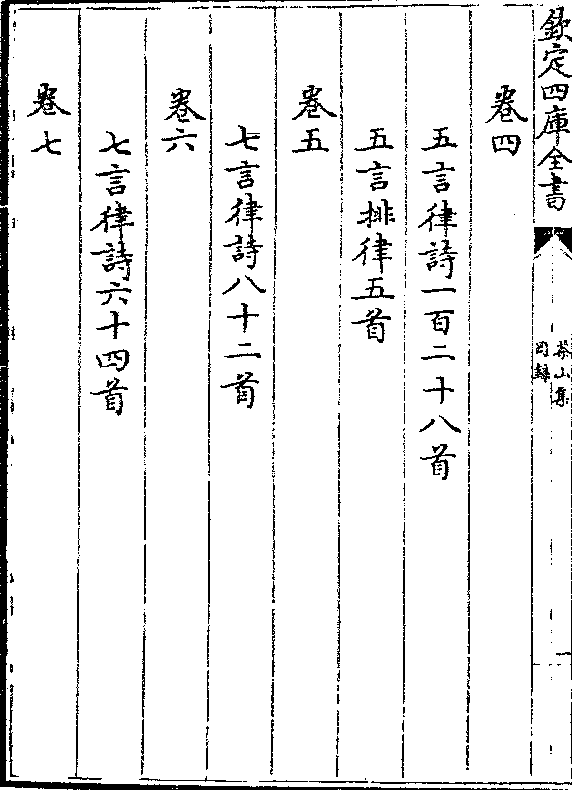 欽定四庫全書
茶山集
目錄
一
卷四
五言律詩一百二十八首
五言排律五首
卷五
七言律詩八十二首
卷六
七言律詩六十四首
卷七